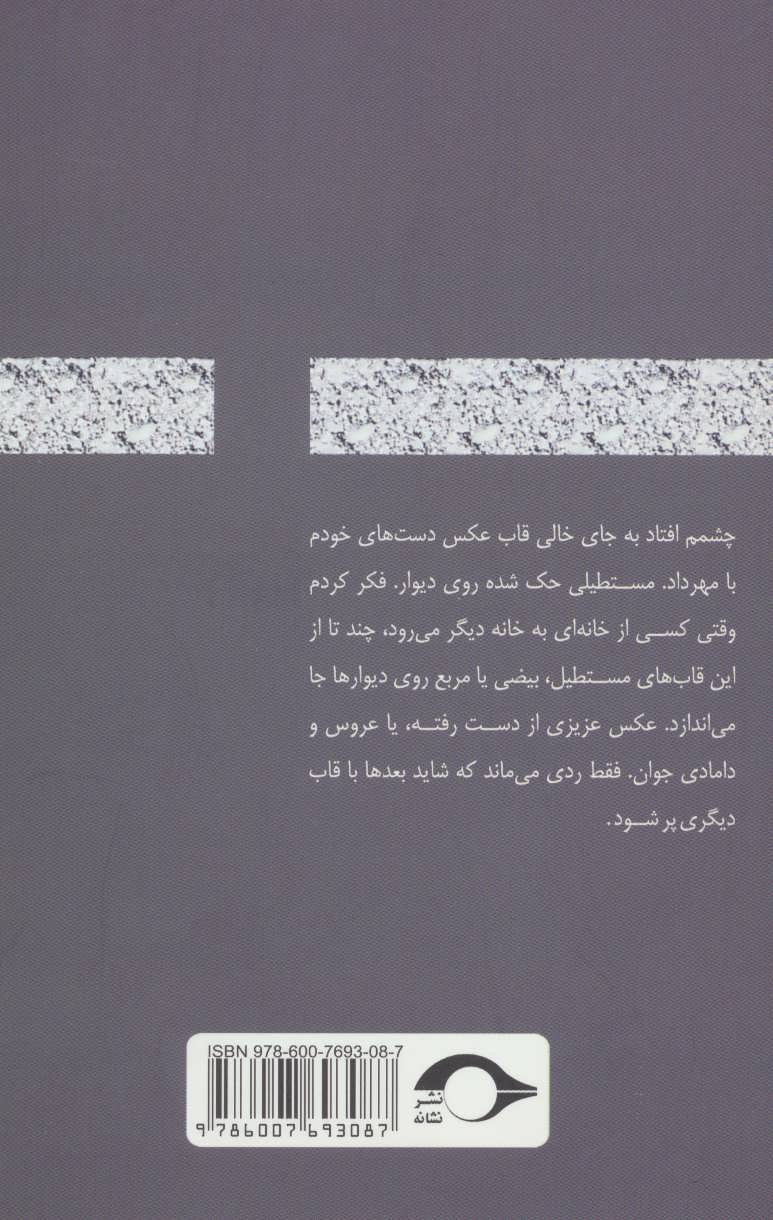 چشمم افتاد به جای خالی قاب عکس دست‌های خودم
با مهرداد. مستطیلی حک شده روی دیوار. فکر کردم
وقتی کسی از خانه‌ای به خانه دیگر می‌رود، چند تا از
این قاب‌های مستطیل، بیضی یا مربع روی دیوارها جا
می‌اندازد. عکس عزیزی از دست رفته، یا عروس و
دامادی جوان. فقط ردی می‌ماند که شاید بعدها با قاب
دیگری پر شود.
ISBN 978-600-7693-08-7
9 786007 693087
نشر
نشانه